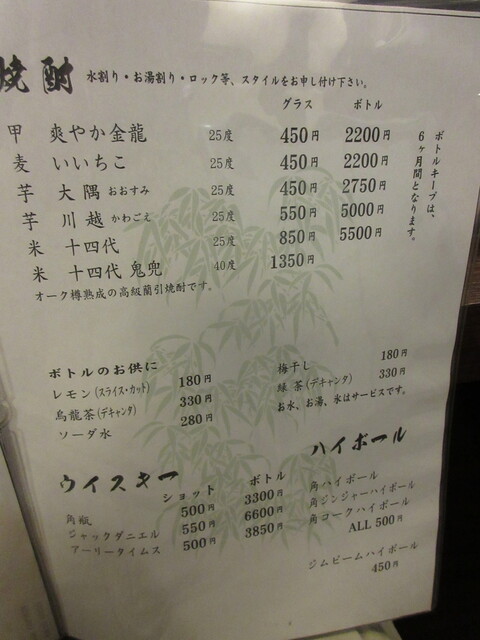 焼酎 水割り・お湯割り・ロック等、スタイルをお申し付け下さい。
グラス ボトル
甲 爽やか金龍 25度 450円 2200円
麦 いいちこ 25度 450円 2200円
芋 大隅 おおすみ 25度 450円 2750円
芋 川越 かわごえ 25度 550円 5000円
米 十四代 25度 850円 5500円
米 十四代 鬼兜 40度 1350円
オーク樽熟成の高級蘭引焼酎です。
ボトルキープは、
6ヶ月間となります。
ボトルのお供に
レモン(スライス・カット) 180円
烏龍茶(デキャンタ) 330円
ソーダ水 280円
梅干し 180円
緑茶(デキャンタ) 330円
お水、お湯、氷はサービスです。
ウイスキー
ショット ボトル
角瓶 500円 3300円
ジャックダニエル 550円 6600円
アーリータイムス 500円 3850円
ハイボール
角ハイボール
角ジンジャーハイボール
角コークハイボール
ALL 500円
ジムビームハイボール
450円